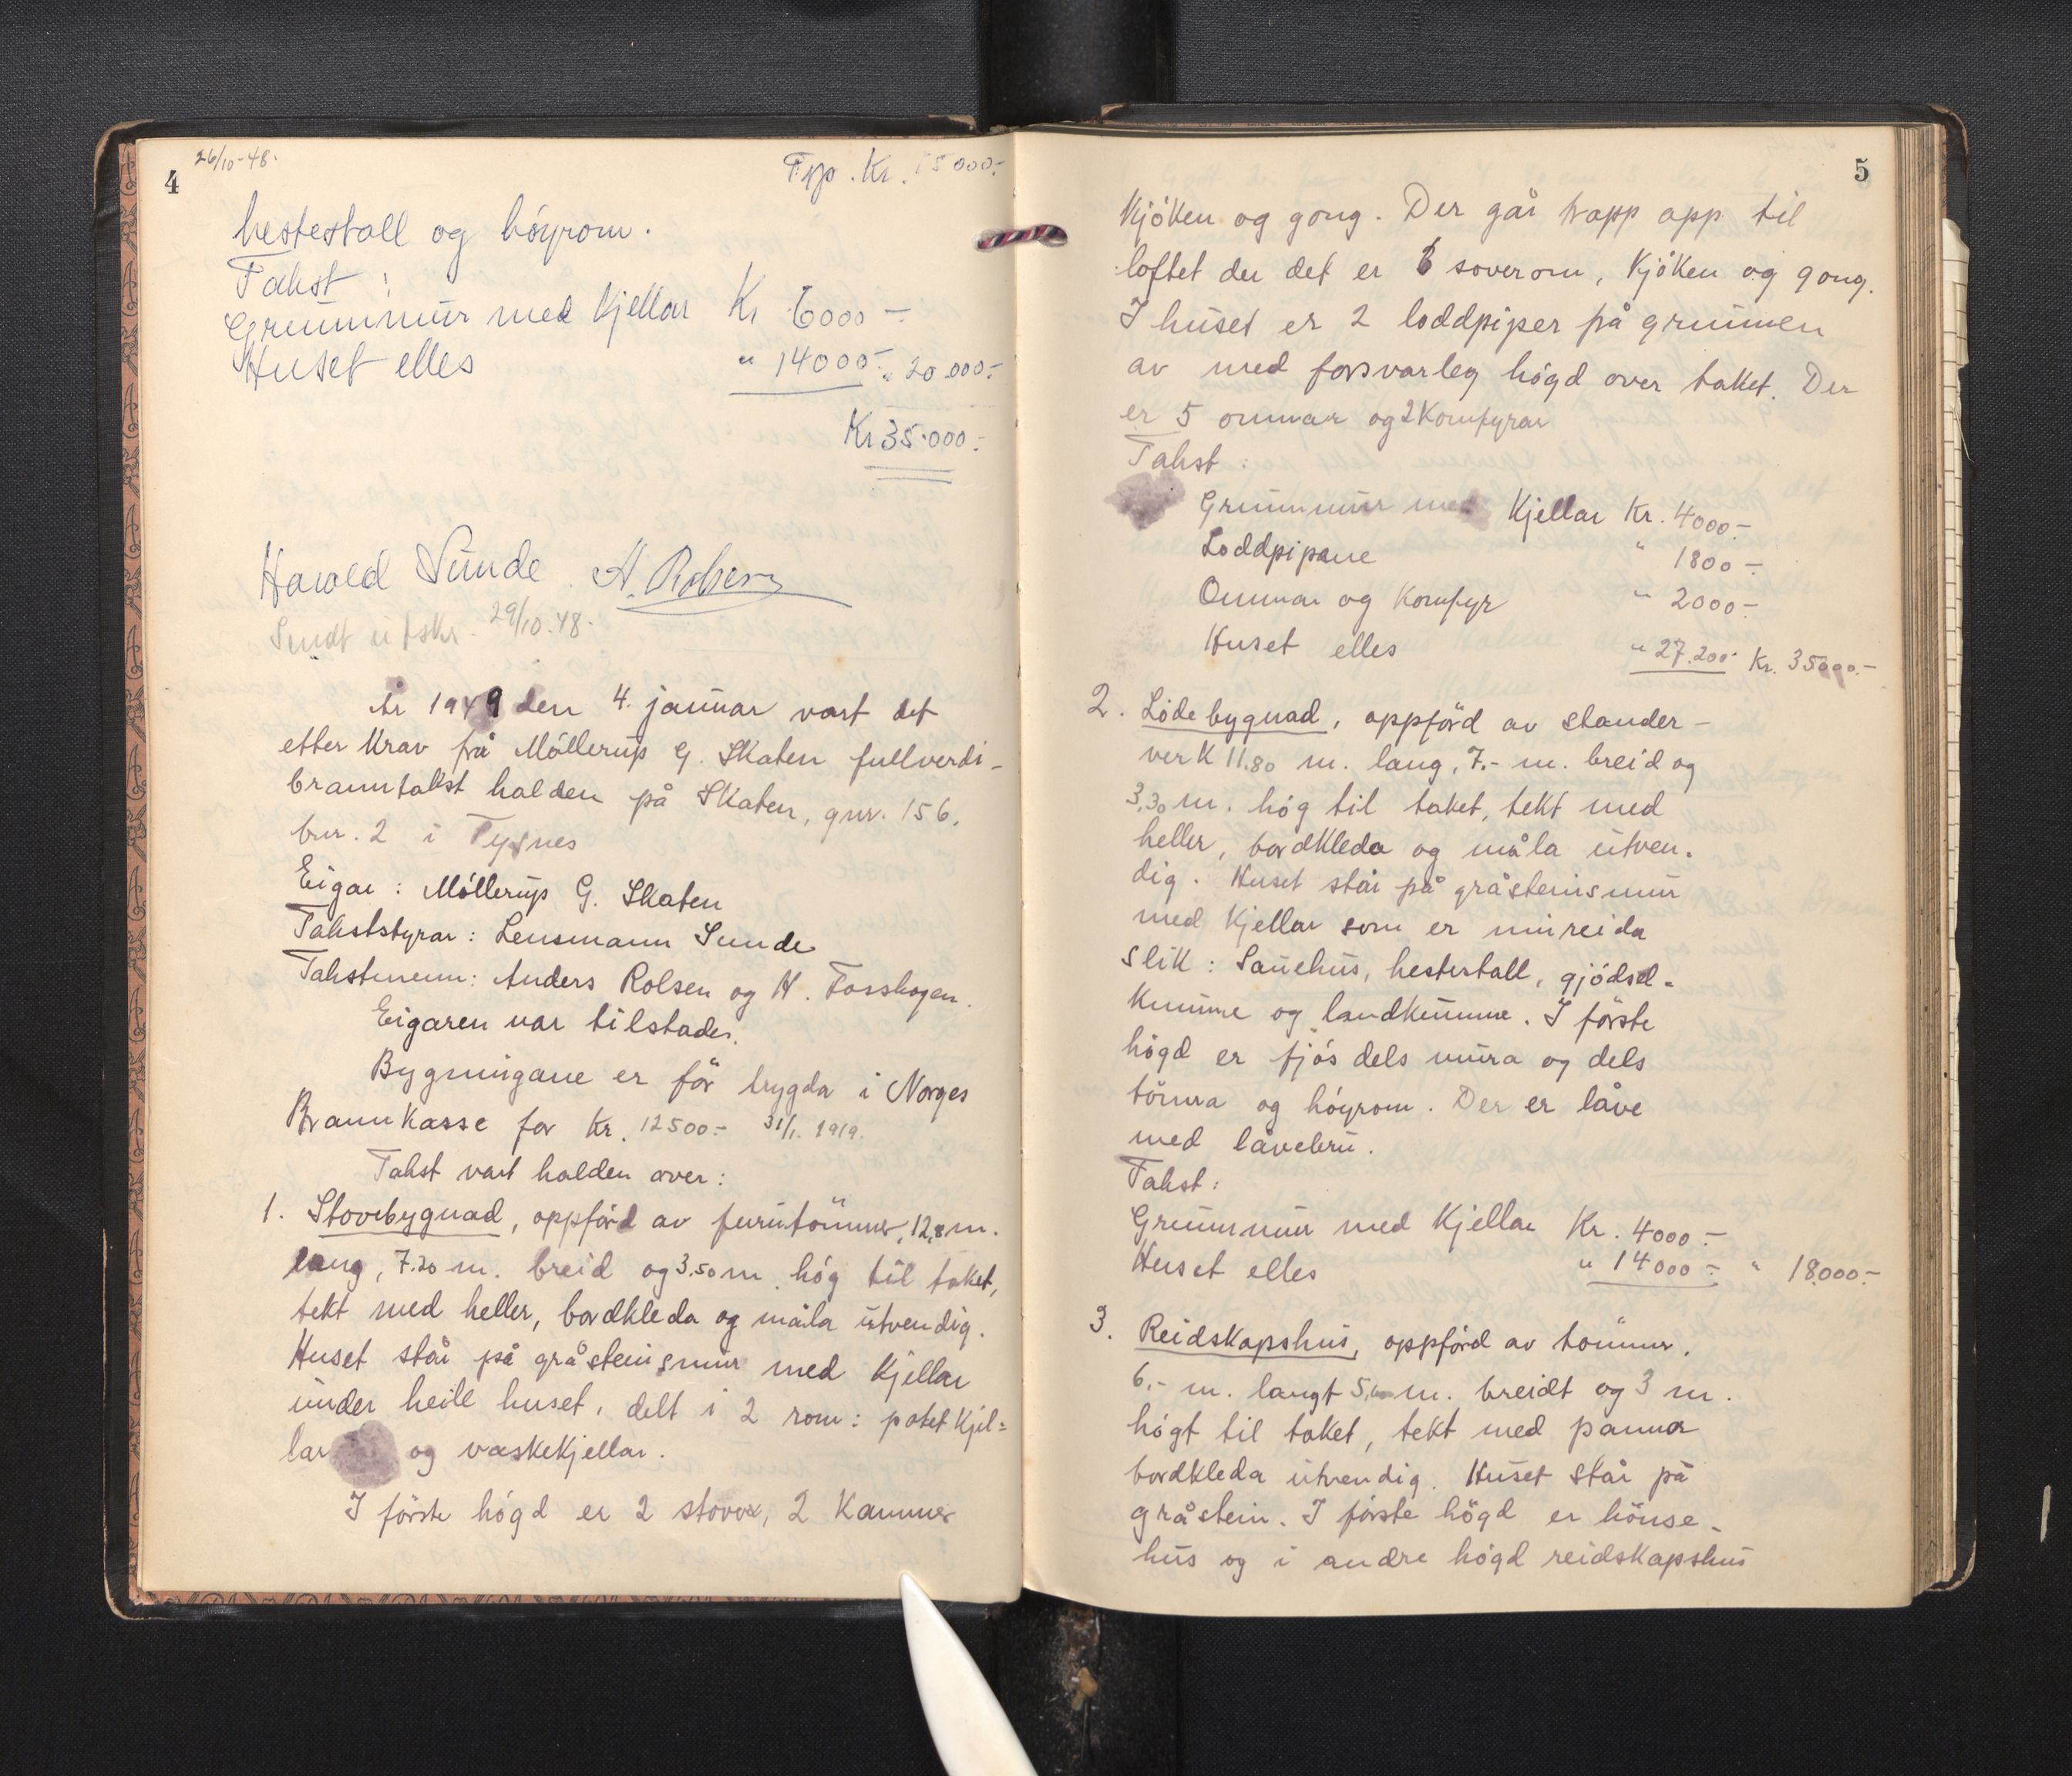 4
26/10-48.
Frp. Kr. 15000.-
hestestall og höyrom.
Takst:
Grunnmur med kjellar Kr 6000.-
Huset elles " 14000.- " 20.000.-
Kr 35.000.-
Harald Sunde. A. Rolsen
Sendt utskr. 29/10.48.
År 1949 den 4. januar vart det
etter krav frå Möllerup G. Skaten fullverdi-
branntakst halden på Skaten, gnr. 156,
bnr. 2 i Tysnes
Eigar: Möllerup G. Skaten
Takststyrar: Lensmann Sunde
Takstmenn: Anders Rolsen og H.
Eigaren var tilstades.
Bygningane er för trygda i Norges
Brannkasse for Kr. 12500.- 31/1. 1919.
Takst vart halden over:
1. Stovebygnad, oppförd av furutömmer, 12,8 m.
lang, 7.20 m. breid og 3.50 m. hög til taket,
tekt med heller, bordkleda og måla utvendig.
Huset står på gråsteinsmur med kjellar
under heile huset, delt i 2 rom: potetkjel=
lar og vaskekjellar.
I förste högd er 2 stover, 2 kammer
5
kjöken og gong. Der går trapp opp til
loftet der det er 6 soverom, kjöken og gong.
I huset er 2 loddpiper på grunnen
av med forsvarleg högd over taket. Der
er 5 omnar og 2 komfyrar
Takst:
Grunnmur med kjellar Kr. 4000.-
Loddpipane " 1800.-
Omnar og komfyr " 2000.-
Huset elles " 27.200.- Kr. 35000.-
2. Lödebygnad, oppförd av stander-
verk 11.80 m. lang, 7.- m. breid og
3,30 m. hög til taket, tekt med
heller, bordkleda og måla utven-
dig. Huset står på gråsteinsmur
med kjellar som er innreida
slik: Sauehus, hestestall, gjödsel-
kumme og landkumme. I förste
högd er fjös dels mura og dels
tömra og höyrom. Der er låve
med låvebru.
Takst:
Grunnmur med kjellar Kr. 4000.-
Huset elles " 14000.- " 18.000.-
3. Reidskapshus, oppförd av tömmer,
6.- m. langt m. breidt og 3 m.
högt til taket, tekt med pannor
bordkleda utvendig. Huset står på
gråstein. I förste högd er hönse-
hus og i andre högd reidskapshus